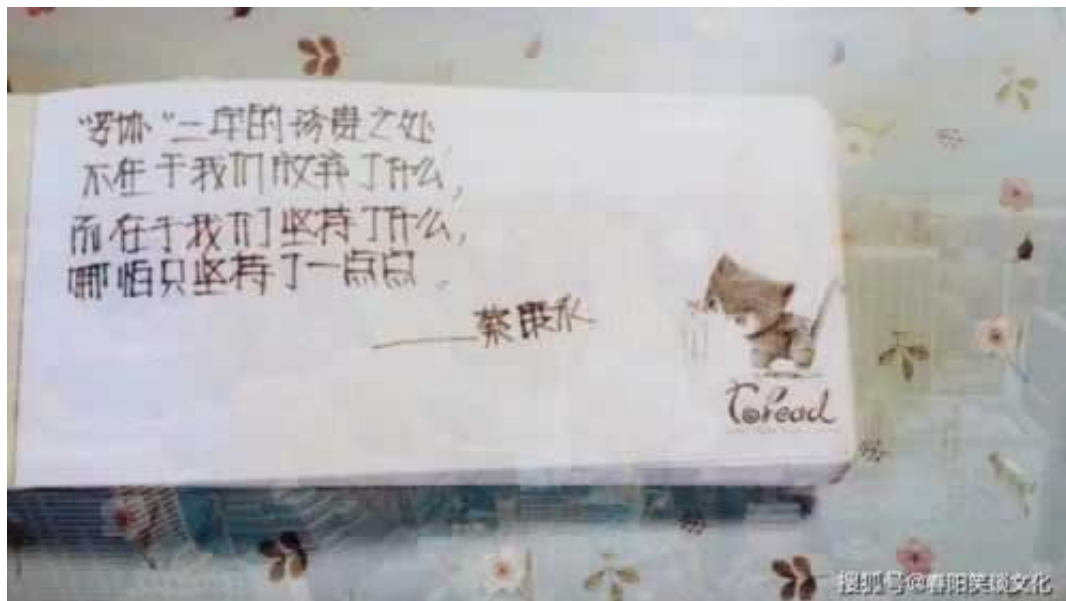 "写协"三年的珍贵之处
不在于我们放弃了什么,
而在于我们坚持了什么,
哪怕只坚持了一点点。
——蔡康永
Toread
搜狐号@春阳笑谈文化